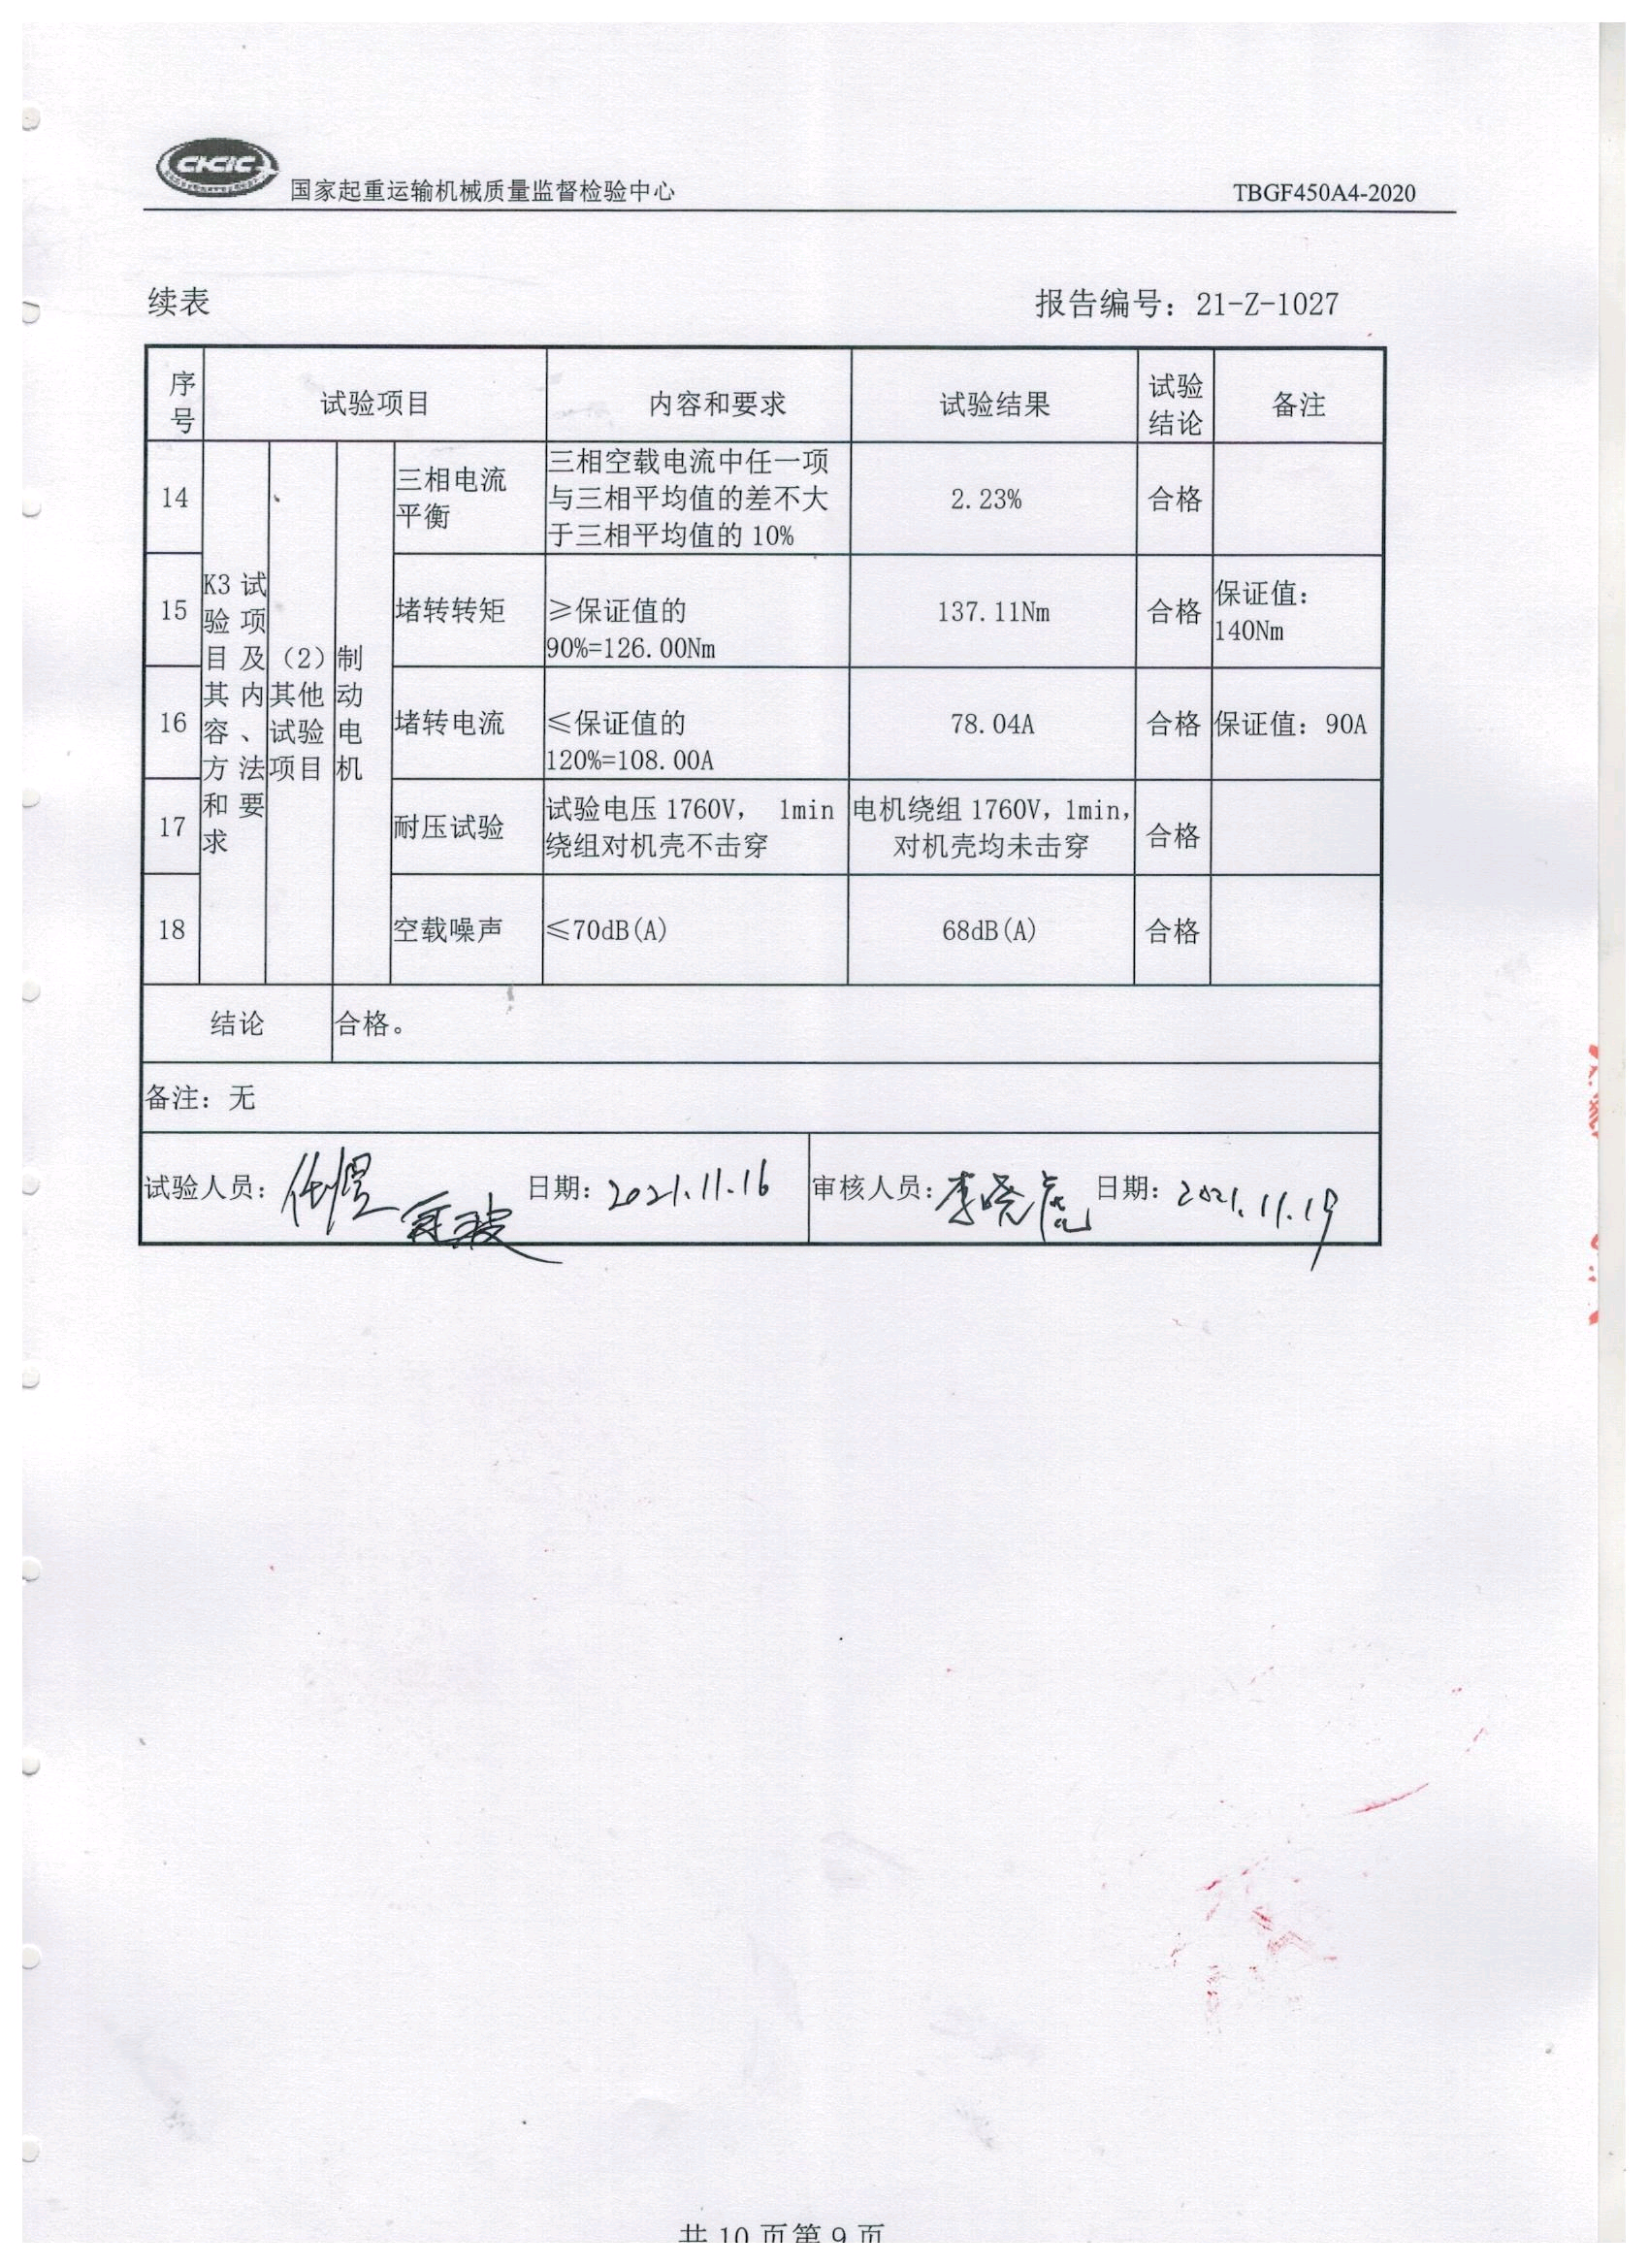 CKCIC
国家起重运输机械质量监督检验中心 TBGF450A4-2020
续表 报告编号：21-Z-1027
序号 试验项目 内容和要求 试验结果 试验结论 备注
K3 试验项目及其内容、方法和要求
（2）其他试验项目
制动电机
14 三相电流平衡 三相空载电流中任一项与三相平均值的差不大于三相平均值的 10% 2.23% 合格
15 堵转转矩 ≥保证值的90%=126.00Nm 137.11Nm 合格 保证值：140Nm
16 堵转电流 ≤保证值的120%=108.00A 78.04A 合格 保证值：90A
17 耐压试验 试验电压 1760V， 1min 绕组对机壳不击穿 电机绕组 1760V，1min，对机壳均未击穿 合格
18 空载噪声 ≤70dB(A) 68dB(A) 合格
结论 合格。
备注：无
试验人员： 日期：2021.11.16 审核人员：李晓虎 日期：2021.11.19
共 10 页第 9 页